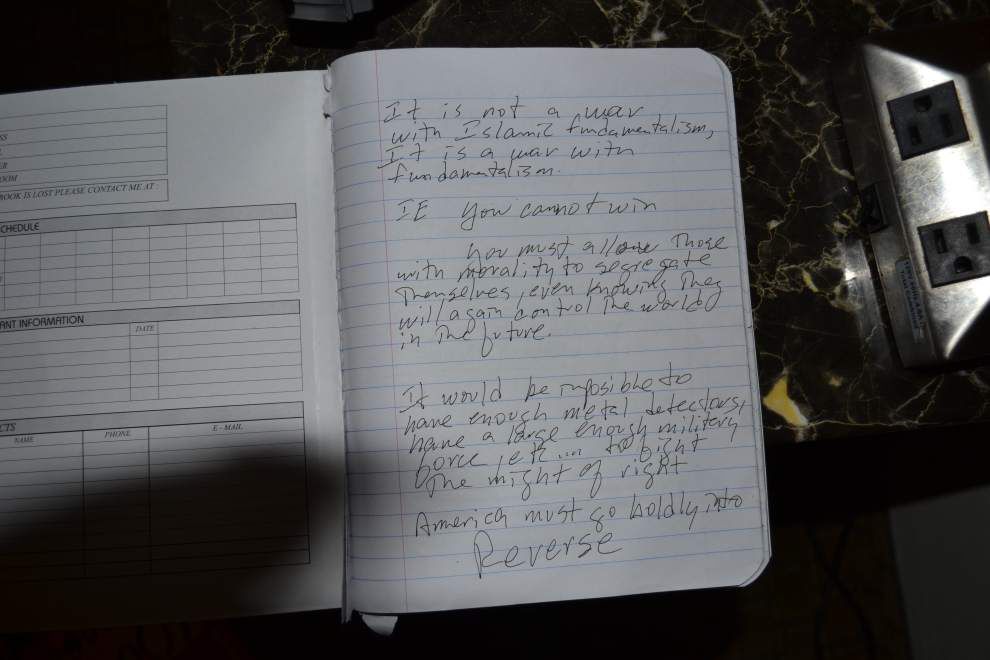 SS
ER
OOM
BOOK IS LOST PLEASE CONTACT ME AT :
CHEDULE
ANT INFORMATION
DATE
CTS
NAME
PHONE
E - MAIL
It is not a war
with Islamic fundamentalism,
It is a war with
fundamentalism.
IE You cannot win
You must allow Those
with morality to segregate
Themselves, even knowing They
will again control The world
in The future.
It would be imposible to
have enough metal detectors,
have a large enough military
force, etc ... to fight
The might of right
America must go boldly into
Reverse